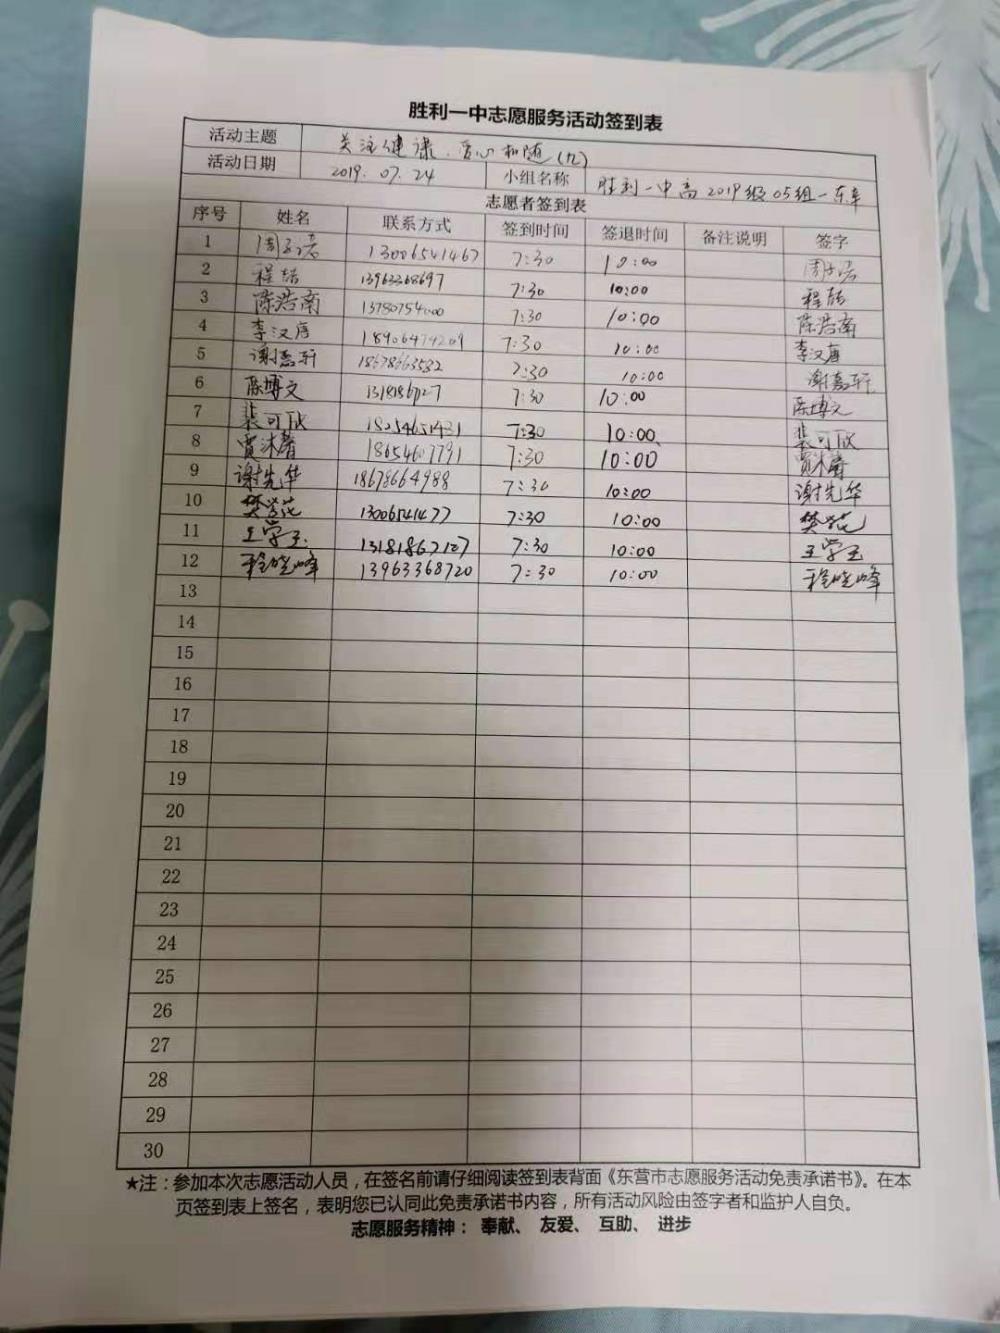 胜利一中志愿服务活动签到表
活动主题 关注健康、爱心相随(九)
活动日期 2019.07.24 小组名称 胜利一中高2019级05组一东辛
志愿者签到表
序号 姓名 联系方式 签到时间 签退时间 备注说明 签字
1 13006541467 7:30 10:00
2 13963368697 7:30 10:00
3 陈浩南 13780754000 7:30 10:00 陈浩南
4 李汉唐 18906474209 7:30 10:00 李汉唐
5 谢嘉轩 18678663532 7:30 10:00 谢嘉轩
6 陈博文 7:30 10:00 陈博文
7 裴可欣 18254651431 7:30 10:00 裴可欣
8 贾沐馨 18654607791 7:30 10:00 贾沐馨
9 谢先华 18678664988 7:30 10:00 谢先华
10 13006541477 7:30 10:00
11 王学玉 13181867127 7:30 10:00 王学玉
12 程晓峰 13963368720 7:30 10:00 程晓峰
13
14
15
16
17
18
19
20
21
22
23
24
25
26
27
28
29
30
★注：参加本次志愿活动人员，在签名前请仔细阅读签到表背面《东营市志愿服务活动免责承诺书》。在本
页签到表上签名，表明您已认同此免责承诺书内容，所有活动风险由签字者和监护人自负。
志愿服务精神： 奉献、 友爱、 互助、 进步